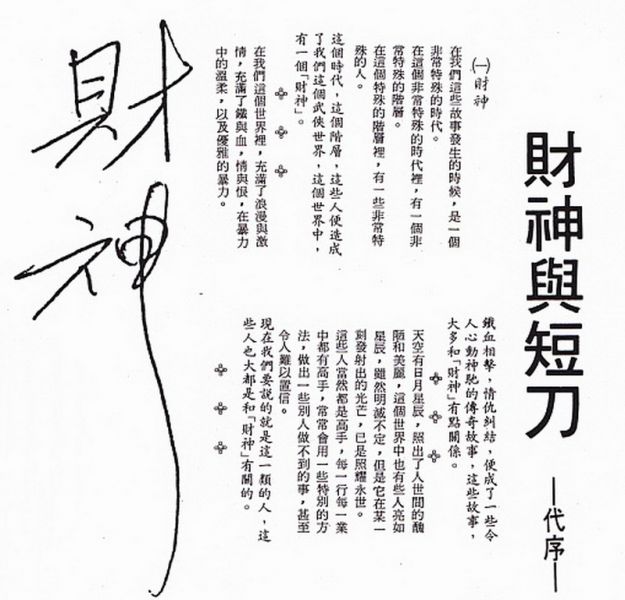 財神與短刀
—代序—
㈠財神
在我們這些故事發生的時候，是一個
非常特殊的時代。
在這個非常特殊的時代裡，有一個非
常特殊的階層。
在這個特殊的階層裡，有一些非常特
殊的人。
這個時代，這個階層，這些人便造成
了我們這個武俠世界，這個世界中，
有一個「財神」。
在我們這個世界裡，充滿了浪漫與激
情，充滿了鐵與血，情與恨，在暴力
中的溫柔，以及優雅的暴力。
鐵血相擊，情仇糾結，便成了一些令
人心動神馳的傳奇故事，這些故事，
大多和「財神」有點關係。
天空有日月星辰，照出了人世間的醜
陋和美麗，這個世界中也有些人亮如
星辰，雖然明滅不定，但是它在某一
刻發射出的光芒，已是照耀永世。
這些人當然都是高手，每一行每一業
中都有高手，常常會用一些特別的方
法，做出一些別人做不到的事，甚至
令人難以置信。
現在我們要說的就是這一類的人，這
些人也大都是和「財神」有關的。
財神